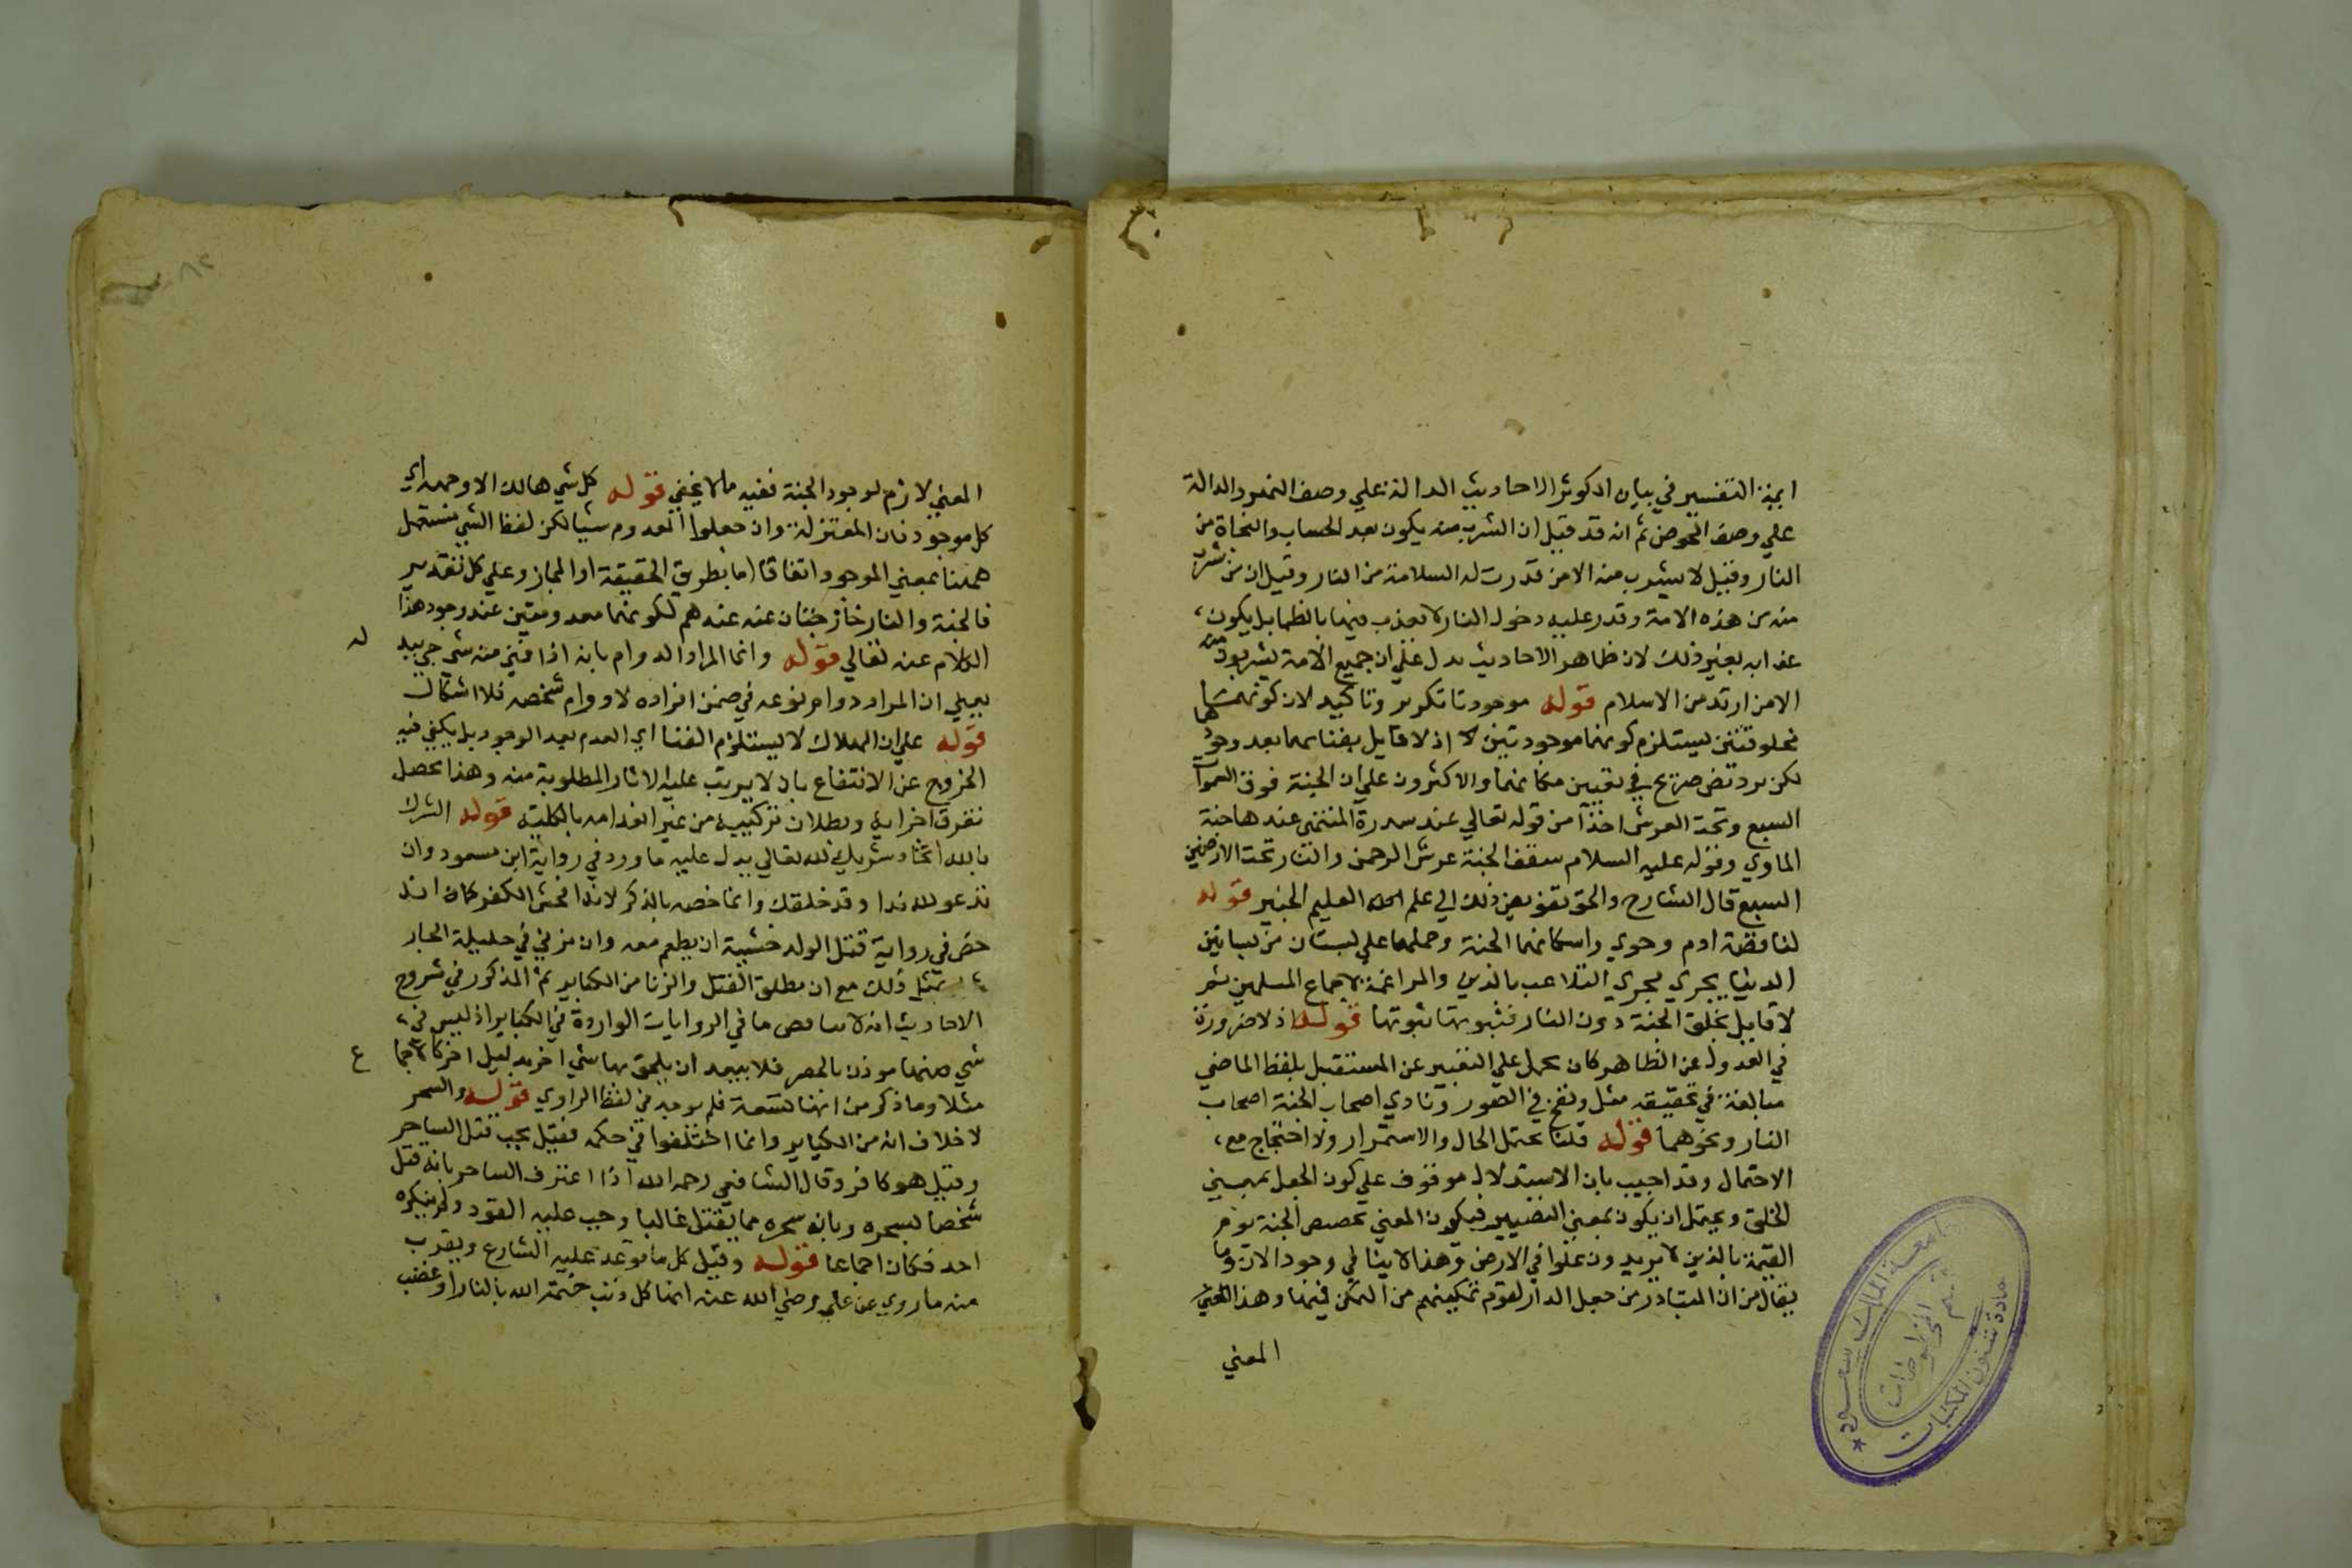 ايمة التفسير في بيان الكوثر الاحاديث الدالة علي وصف النهر والدالة
علي وصف الحوض ثم انه قد قيل ان الشرب منه يكون بعد الحساب والنجاة من
النار وقيل لا يشرب منه الا من قدرت له السلامة من النار وقيل ان من شرب
منه من هذه الامة وقدر عليه دخول النار لا يعذب فيها بالظما بل يكون
عذابه بغير ذلك لان ظاهر الاحاديث يدل علي ان جميع الامة يشربون منه
الا من ارتد من الاسلام قوله موجودتان تكرير وتاكيد لان كونهما
مخلوقتين يستلزم كونهما موجودتين اذ لا قايل بفنايهما بعد وجودهما
لكن يرد نص صريح في تعيين مكانهما والاكثرون علي ان الجنة فوق السموات
السبع وتحت العرش اخذا من قوله تعالي عند سدرة المنتهى عندها جنة
الماوي وقوله عليه السلام سقف الجنة عرش الرحمن والنار تحت الارضين
السبع قال الشارح والحق تفويض ذلك الي علم الله العليم الخبير قوله
لنا قصة ادم وحوي واسكانهما الجنة وحملها علي بستان من بساتين
الدنيا يجري مجري التلاعب بالدين والمراغمة لاجماع المسلمين ثم
لا قايل بخلق الجنة دون النار فثبوتها ثبوتها قوله اذ لا ضرورة
في العدول عن الظاهر كان يحمل علي التعبير عن المستقبل بلفظ الماضي
مبالغة في تحقيقه مثل ونفخ في الصور ونادي اصحاب الجنة اصحاب
النار ونحوهما قوله قلنا يحتمل الحال والاستمرار ولا احتجاج مع
الاحتمال وقد اجيب بان الاستدلال موقوف علي كون الجعل بمعني
الخلق ويحتمل ان يكون بمعني التصيير فيكون المعني تخصيص الجنة يوم
القيمة بالذين لا يريدون علوا في الارض وهذا لا ينافي وجود الان وما
يقال من ان المتبادر من جعل الدار لقوم تمكينهم من التمكن فيها وهذا المعني
المعني
المعني لازم لوجود الجنة ففيه ما لا يخفي قوله كل شي هالك الا وجهه اي
كل موجود فان المعتزلة وان جعلوا المعدوم شيا لكن لفظ الشي مستعمل
ههنا بمعني الموجود اتفاقا اما بطريق الحقيقة او المجاز وعلي كل تقدير
فالجنة والنار خارجتان عنه عندهم لكونهما معدومتين عند وجود هذا
الكلام عنه تعالي قوله وانما المراد الدوام بانه اذا فني منه شي جي ببد
له
يعني ان المراد دوام نوعه في ضمن افراده لا دوام شخصه فلا اشكال
قوله علي ان الهلاك لا يستلزم الفنا اي العدم بعد الوجود بل يكفي فيه
الخروج عن الانتفاع بان لا يرتب عليه الاثار المطلوبة منه وهذا يحصل
بتفرق اجزايه وبطلان تركيبه من غير انعدامه بالكلية قوله الشرك
بالله اتخاذ شريك لله تعالي يدل عليه ما ورد في رواية ابن مسعود وان
تدعو لله ندا وقد خلقك وانما خصه بالذكر لانه افحش الكفر كما انه
خص في رواية قتل الولد خشية ان يطعم معه وان يزني في حليلة الجار
بمثل ذلك مع ان مطلق القتل والزنا من الكباير ثم المذكور في شروح
الاحاديث انه لا تناقض ما في الروايات الواردة في الكباير اذ ليس في
شي منها موذن بالحصر فلا يبعد ان يلحق بها شي اخر بدليل اخر كالاجما
ع
مثلا وما ذكر من انها تسعة فلم يوجد في لفظ الراوي قوله والسحر
لا خلاف انه من الكباير وانما اختلفوا في حكمه فقيل يجب قتل الساحر
وقيل هو كافر وقال الشافعي رحمه الله اذا اعترف الساحر بانه قتل
شخصا بسحره وبانه سحره مما يقتل غالبا وجب عليه القود ولم ينكره
احد فكان اجماعا قوله وقيل كل ما توعد عليه الشارع ويقرب
منه ما روي عن علي رضي الله عنه انها كل ذنب ختمه الله بالنار او غضب
٨٢
جامعة الملك سعود
عمادة شئون المكتبات
قسم المخطوطات